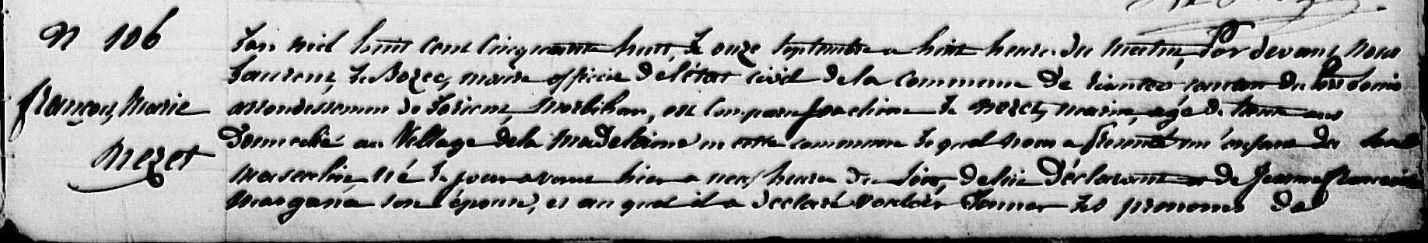 N 106
François Marie
Nezet
L'an mil huit cent cinquante huit, le onze septembre a huit heures du matin, Par devant nous
Laurent Le Bozec, maire officier de l'état civil de la commune de Riantec canton du Port Louis
arrondissement de Lorient, Morbihan, est comparu Joachim Le Nezet, marin, agé de trente ans
Domicilié au Village de la Madeleine en cette commune lequel nous a présenté un enfant du sexe
Masculin, né le jour avant hier a neuf heures du soir, de lui Déclarant et de Jeanne Françoise
son épouse, et au quel il a déclaré vouloir Donner les prenoms de